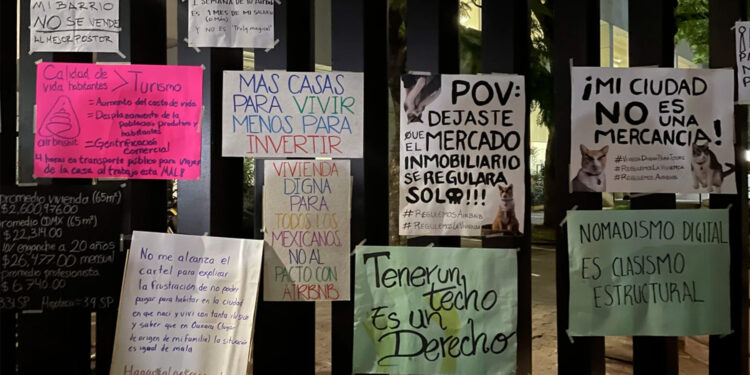 MI BARRIO
NO SE VENDE
AL MEJOR POSTOR
ES 1 MES DE MI SALARIO
Y NO ES "Truly magical"
Calidad de
vida habitantes > Turismo
= Aumento del costo de vida
= Desplazamiento de la
población productiva y
habitantes
= Gentrificación
Comercial
airbnshit
4 horas en transporte público para viajar
de la casa al trabajo está MAL!!
MAS CASAS
PARA VIVIR
MENOS PARA
INVERTIR
POV:
DEJASTE
QUE EL MERCADO
INMOBILIARIO
SE REGULARA
SOLO!!!
#REGULEMOSAIRBNB
#REGULEMOSLAVIVIENDA
¡MI CIUDAD
NO ES
UNA
MERCANCÍA!
#VIVIENDADIGNAPARATODXS
#REGULEMOSLAVIVIENDA
#REGULEMOSAIRBNB
VIVIENDA
DIGNA
PARA
TODOS LOS
MEXICANOS.
NO AL
PACTO CON
AIRBNB
Promedio Vivienda (65m²)
$2,600,976.00
promedio CDMX (65m²)
$22,314.00
10% enganche a 20 años
$26,477.00 mensual
promedio profesionista
$6 740.00
No me alcanza el
cartel para explicar
la frustración de no poder
pagar para habitar en la ciudad
en que nací y viví con tanta
y saber que en Oaxaca (lugar
de origen de mi familia) la situación
es igual de mala
Tener un
techo
Es un
Derecho
NOMADISMO DIGITAL
ES CLASISMO
ESTRUCTURAL